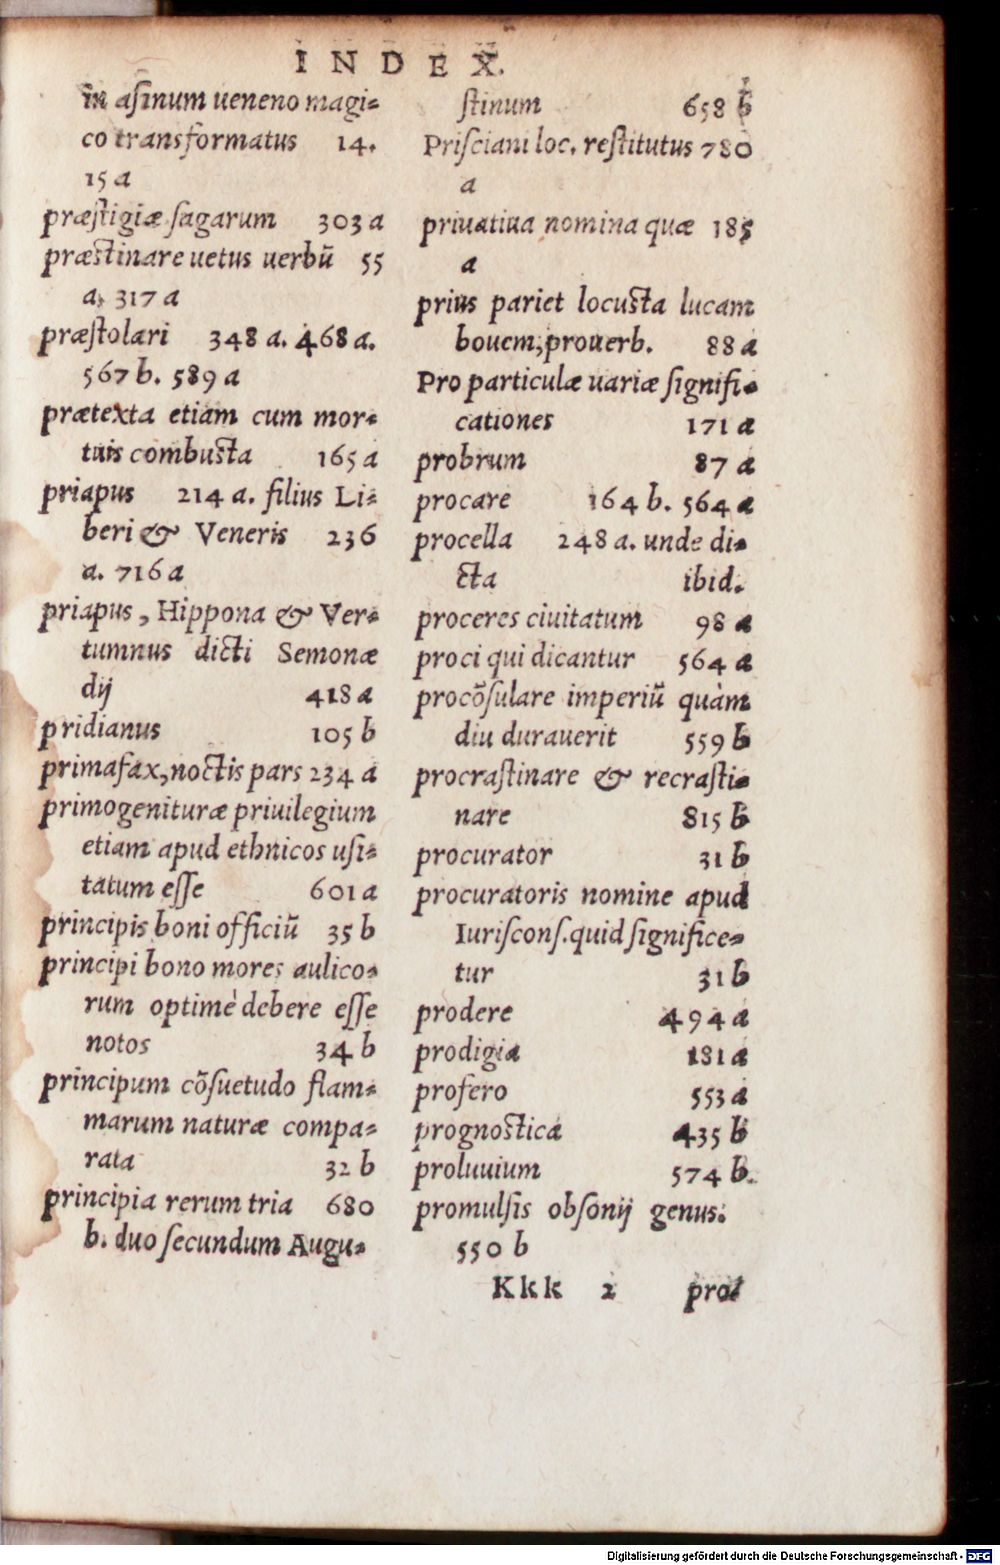 INDEX.
in aſinum ueneno magi-
co transformatus 14.
15 a
præſtigiæ ſagarum 303 a
præstinare uetus uerbū 55
a. 317 a
præſtolari 348 a. 468 a.
567 b. 589 a
prætexta etiam cum mor-
tuis combusta 165 a
priapus 214 a. filius Li-
beri & Veneris 236
a. 716 a
priapus, Hippona & Ver-
tumnus dicti Semonæ
dij 418 a
pridianus 105 b
primafax, noctis pars 234 a
primogenituræ priuilegium
etiam apud ethnicos uſi-
tatum eſſe 601 a
principis boni officiū 35 b
principi bono mores aulico-
rum optimè debere eſſe
notos 34 b
principum cōſuetudo flam-
marum naturæ compa-
rata 32 b
principia rerum tria 680
b. duo ſecundum Augu-
ſtinum 658 b
Priſciani loc. reſtitutus 780
a
priuatiua nomina quæ 185
a
prius pariet locusta lucam
bouem, prouerb. 88 a
Pro particulæ uariæ ſignifi-
cationes 171 a
probrum 87 a
procare 164 b. 564 a
procella 248 a. unde di-
cta ibid.
proceres ciuitatum 98 a
proci qui dicantur 564 a
procōſulare imperiū quàm
diu durauerit 559 b
procraſtinare & recraſti-
nare 815 b
procurator 31 b
procuratoris nomine apud
Iuriſconſ. quid ſignifice-
tur 31 b
prodere 494 a
prodigia 181 a
profero 553 a
prognostica 435 b
proluuium 574 b.
promulſis obſonij genus.
550 b
Kkk 2 pro-
Digitalisierung gefördert durch die Deutsche Forschungsgemeinschaft - DFG